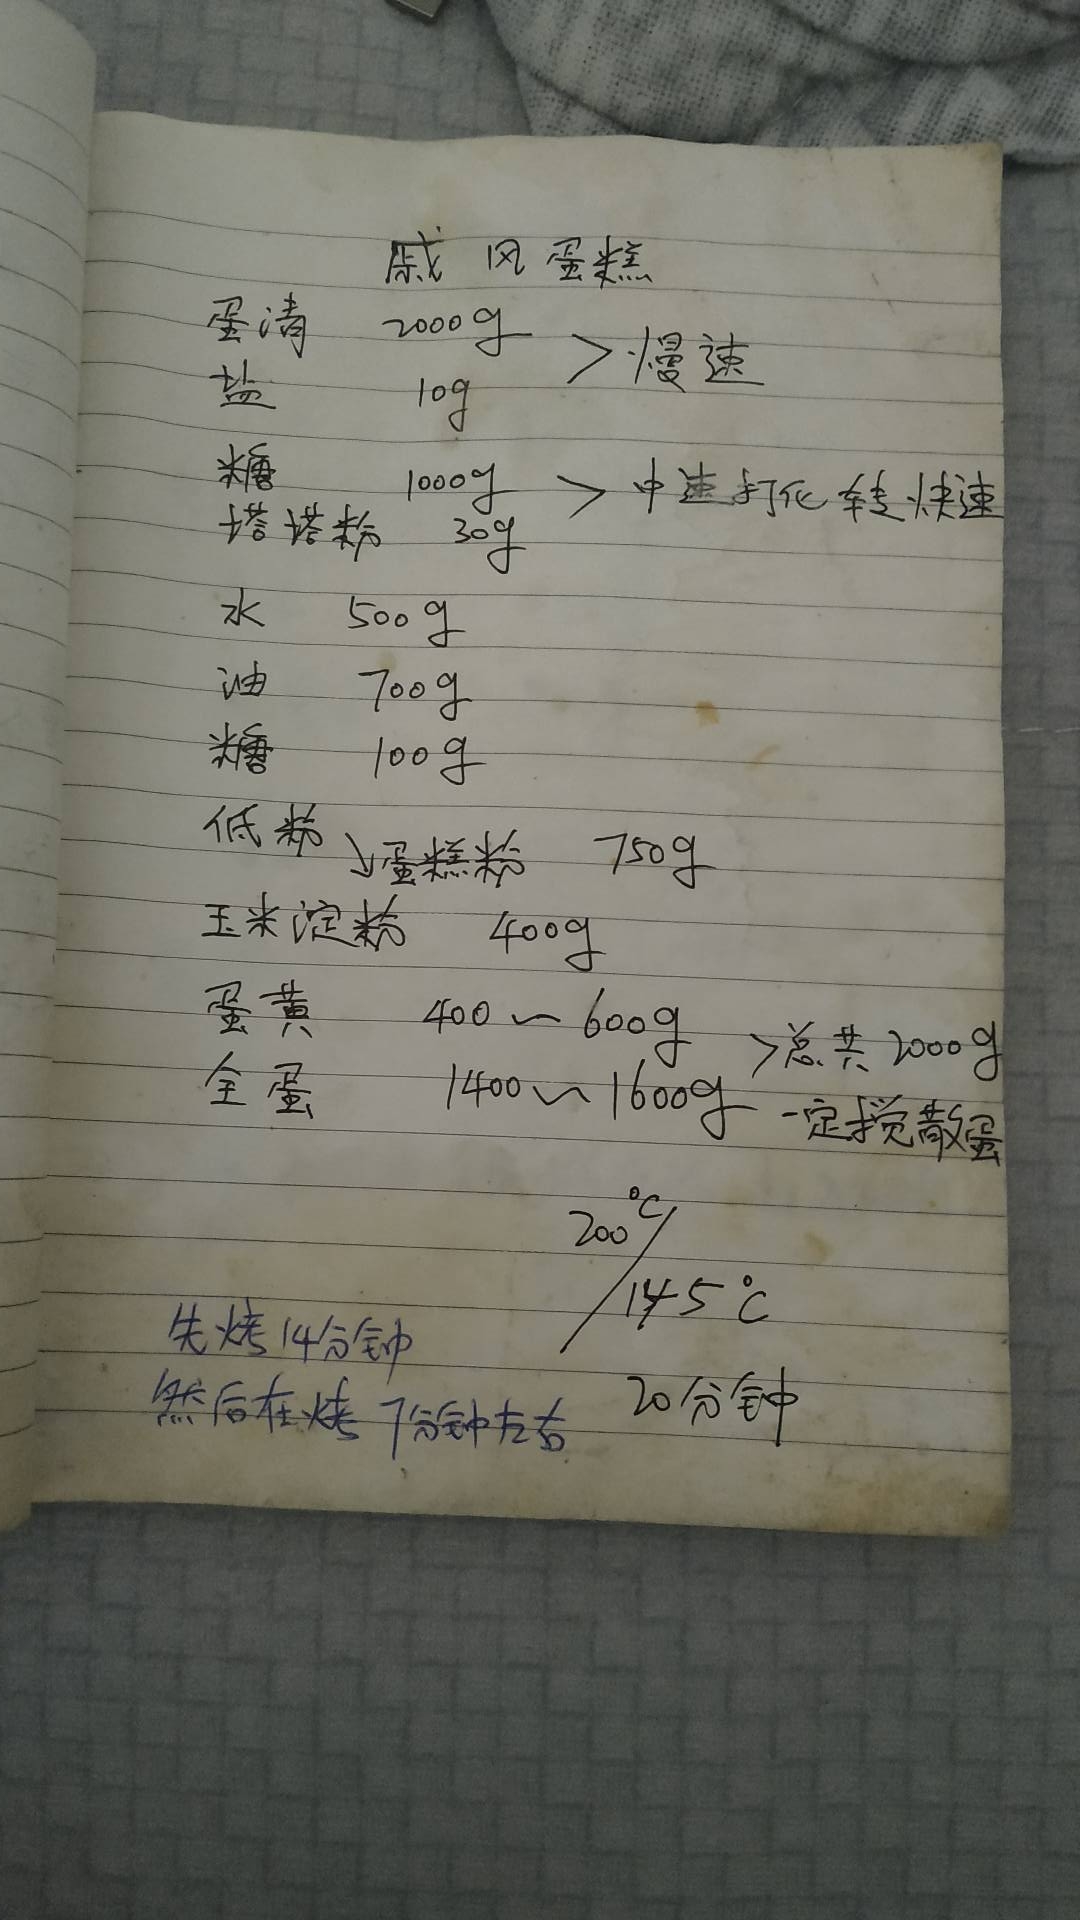 戚风蛋糕
蛋清 2000g
盐 10g
>慢速
糖 1000g
塔塔粉 30g
>中速打化转快速
水 500g
油 700g
糖 100g
低粉↘蛋糕粉 750g
玉米淀粉 400g
蛋黄 400~600g
全蛋 1400~1600g
>总共2000g
一定搅散蛋
200℃/145℃
先烤14分钟
然后在烤7分钟左右
20分钟